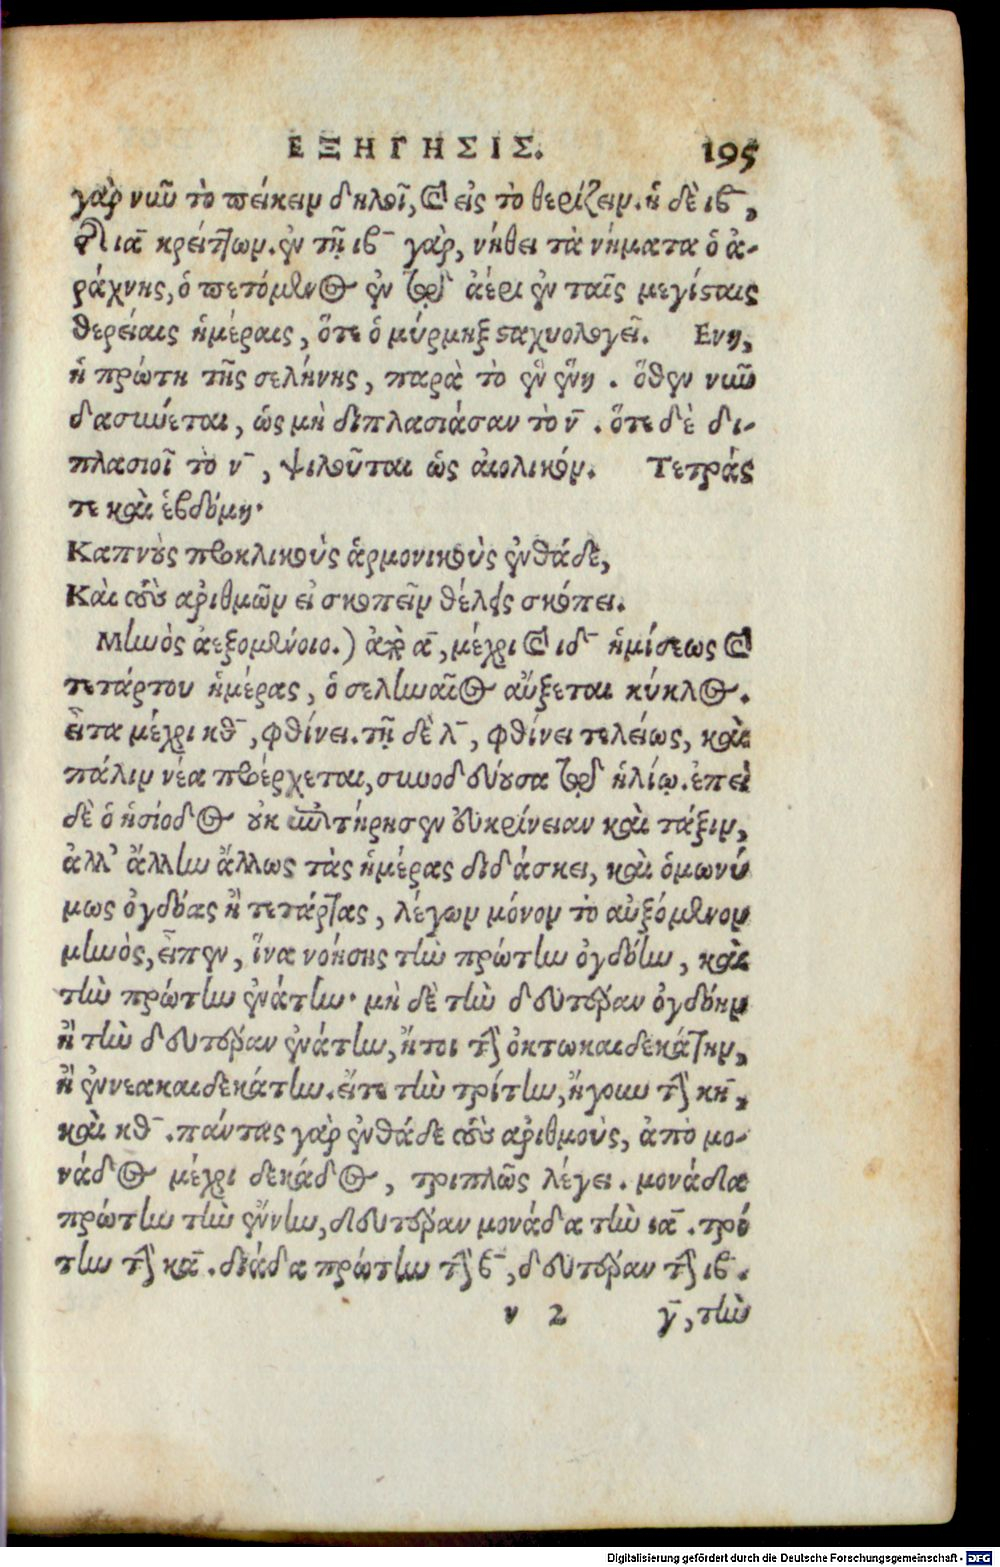 ΕΞΗΓΗΣΙΣ. 195
γὰρ νῦν τὸ πείκειν δηλοῖ, καὶ εἰς τὸ θερίζειν. ἡ δὲ ιβ̄,
τῆς ιᾱ κρείττων. ἐν τῇ ιβ̄ γὰρ, νήθει τὰ νήματα ὁ ἀ-
ράχνης, ὁ πετόμενος ἐν τῷ ἀέρι ἐν ταῖς μεγίσταις
θερείαις ἡμέραις, ὅτε ὁ μύρμηξ σταχυολογεῖ. Ενη,
ἡ πρώτη τῆς σελήνης, παρὰ τὸ ἓν ἕνη. ὅθεν νῦν
δασύνεται, ὡς μὴ διπλασιάσαν τὸ ν̄. ὅτε δὲ δι-
πλασιοῖ τὸ ν̄, ψιλοῦται ὡς αἰολικόν. Τετράς
τε καὶ ἑβδόμη.
Καπνοὺς προκλικοὺς ἁρμονικοὺς ἐνθάδε,
Καὶ τοὺς ἀριθμῶν εἰ σκοπεῖν θέλεις σκόπει.
Μηνὸς ἀεξομένοιο.) ἀπὸ ᾱ, μέχρι καὶ ιδ̄ ἡμίσεως καὶ
τετάρτου ἡμέρας, ὁ σεληναῖος αὔξεται κύκλος.
εἶτα μέχρι κθ̄, φθίνει. τῇ δὲ λ̄, φθίνει τελείως, καὶ
πάλιν νέα προέρχεται, συνοδεύουσα τῷ ἡλίῳ. ἐπεὶ
δὲ ὁ ἡσίοδος οὐκ ἐτήρησεν εὐκρίνειαν καὶ τάξιν,
ἀλλ' ἄλλην ἄλλως τὰς ἡμέρας διδάσκει, καὶ ὁμωνύ
μως ὀγδόας ἢ τετάρτας, λέγων μόνον τὸ αὐξόμενον
μηνὸς, εἶπεν, ἵνα νοήσῃς τὴν πρώτην ὀγδόην, καὶ
τὴν πρώτην ἐνάτην· μὴ δὲ τὴν δευτέραν ὀγδόην
ἢ τὴν δευτέραν ἐνάτην, ἤτοι τὴν ὀκτωκαιδεκάτην,
ἢ ἐννεακαιδεκάτην. εἴτε τὴν τρίτην, ἤγουν τὴν κη̄,
καὶ κθ̄. πάντας γὰρ ἐνθάδε τοὺς ἀριθμοὺς, ἀπὸ μο-
νάδος μέχρι δεκάδος, τριπλῶς λέγει. μονάδα
πρώτην τὴν ἕνην, δευτέραν μονάδα τὴν ιᾱ. τρί
την τὴν κᾱ. διάδα πρώτην τὴν β̄, δευτέραν τὴν ιβ̄.
ν 2 γ̄, τὴν
Digitalisierung gefördert durch die Deutsche Forschungsgemeinschaft - DFG